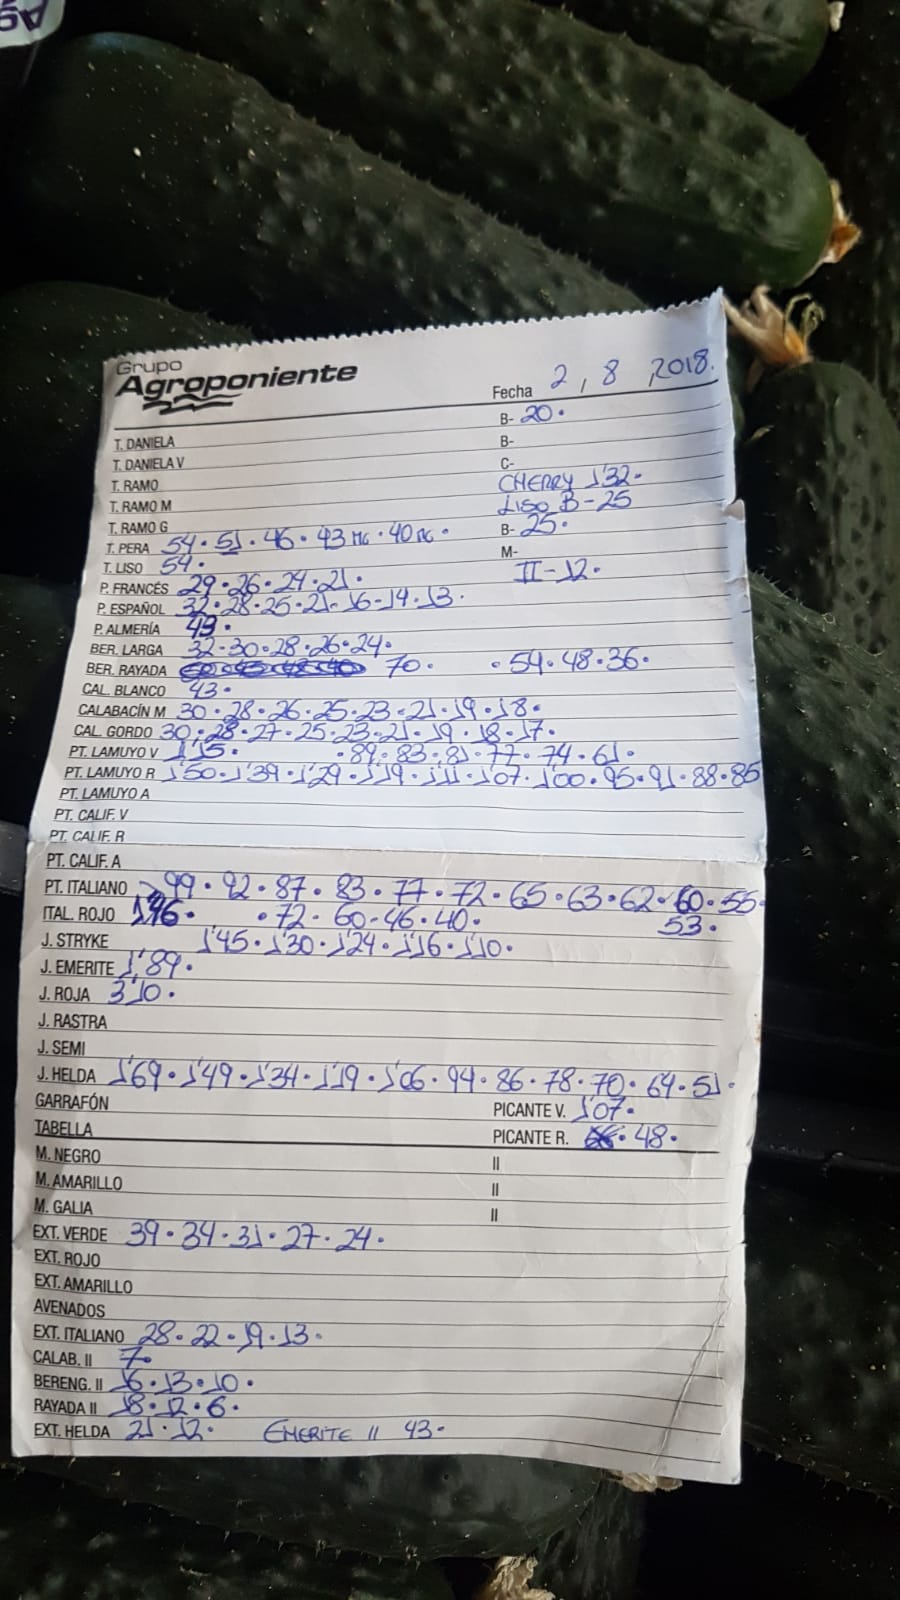 Grupo
Agroponiente
Fecha 2, 8, 2018.
B- 20.
T. DANIELA B-
T. DANIELA V C-
T. RAMO CHERRY 1'32.
T. RAMO M LISO B-25
T. RAMO G B- 25.
T. PERA 54. 51. 46. 43 MG. 40 MG. M-
T. LISO 54. II-12.
P. FRANCÉS 29. 26. 24. 21.
P. ESPAÑOL 32. 28. 25. 21. 16-14. 13.
P. ALMERÍA 43.
BER. LARGA 32-30. 28. 26. 24.
BER. RAYADA 70. .54. 48. 36.
CAL. BLANCO 43.
CALABACÍN M 30. 28. 26. 25. 23. 21. 19. 18.
CAL. GORDO 30. 28. 27. 25. 23. 21. 19. 18. 17.
PT. LAMUYO V 1'15. .89. 83. 81. 77. 74. 61.
PT. LAMUYO R 1'50. 1'39. 1'29. 1'19. 1'11. 1'07. 1'00. 95. 91. 88. 85
PT. LAMUYO A
PT. CALIF. V
PT. CALIF. R
PT. CALIF. A
PT. ITALIANO 99. 92. 87. 83. 77. 72. 65. 63. 62. 60. 55.
ITAL. ROJO .72. 60. 46. 40. 53.
J. STRYKE 1'45. 1'30. 1'24. 1'16. 1'10.
J. EMERITE 1'89.
J. ROJA 3'10.
J. RASTRA
J. SEMI
J. HELDA 1'69. 1'49. 1'34. 1'19. 1'06. 94. 86. 78. 70. 64. 51.
GARRAFÓN PICANTE V. 1'07.
TABELLA PICANTE R. 48.
M. NEGRO II
M. AMARILLO II
M. GALIA II
EXT. VERDE 39. 34. 31. 27. 24.
EXT. ROJO
EXT. AMARILLO
AVENADOS
EXT. ITALIANO 28. 22. 19. 13.
CALAB. II 7.
BERENG. II 16. 13. 10.
RAYADA II 18. 12. 6.
EXT. HELDA 21. 12. EMERITE II 43.